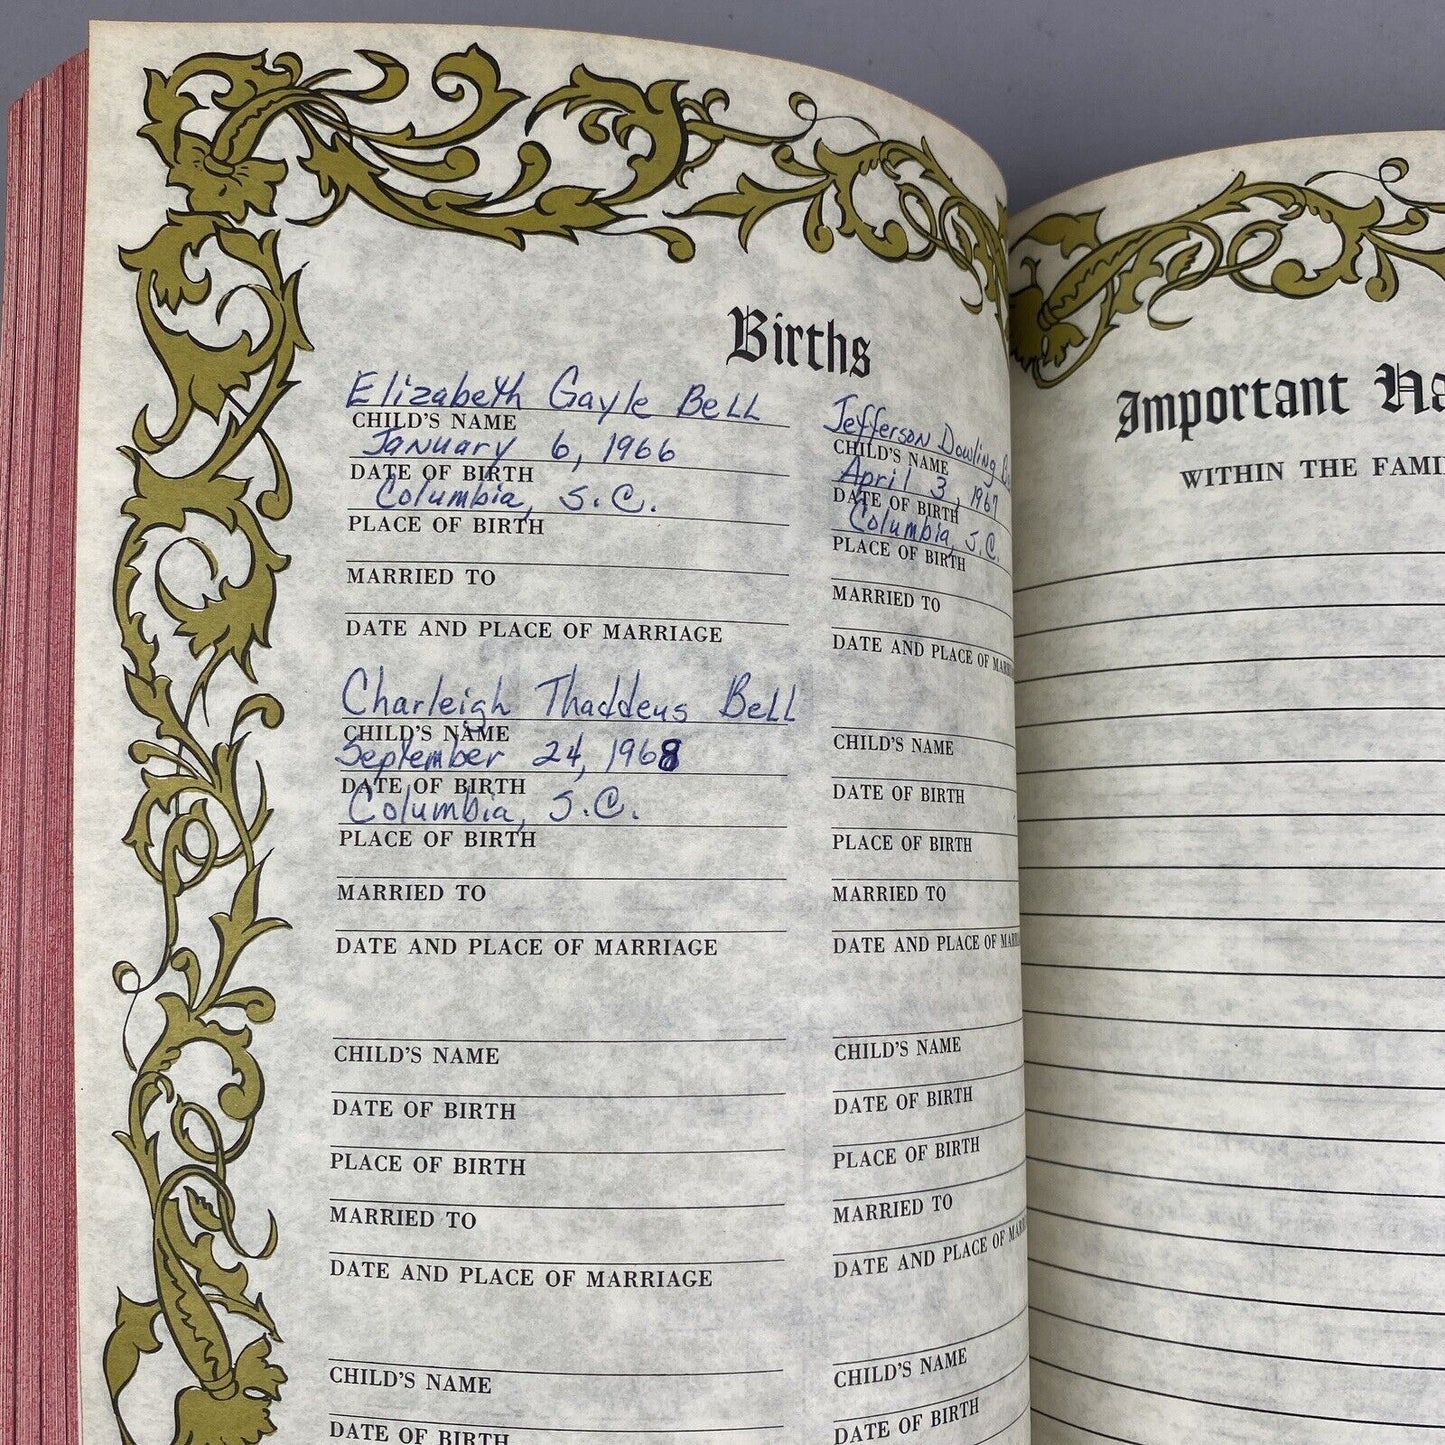 Births
Elizabeth Gayle Bell
CHILD'S NAME
January 6, 1966
DATE OF BIRTH
Columbia, S.C.
PLACE OF BIRTH
MARRIED TO
DATE AND PLACE OF MARRIAGE
Jefferson Dowling
CHILD'S NAME
April 3, 1967
DATE OF BIRTH
Columbia, S.C.
PLACE OF BIRTH
MARRIED TO
DATE AND PLACE OF
Charleigh Thaddeus Bell
CHILD'S NAME
September 24, 1968
DATE OF BIRTH
Columbia, S.C.
PLACE OF BIRTH
MARRIED TO
DATE AND PLACE OF MARRIAGE
CHILD'S NAME
DATE OF BIRTH
PLACE OF BIRTH
MARRIED TO
DATE AND PLACE OF
CHILD'S NAME
DATE OF BIRTH
PLACE OF BIRTH
MARRIED TO
DATE AND PLACE OF MARRIAGE
CHILD'S NAME
DATE OF BIRTH
PLACE OF BIRTH
MARRIED TO
DATE AND PLACE OF
CHILD'S NAME
DATE OF BIRTH
CHILD'S NAME
DATE OF BIRTH
Important
WITHIN THE